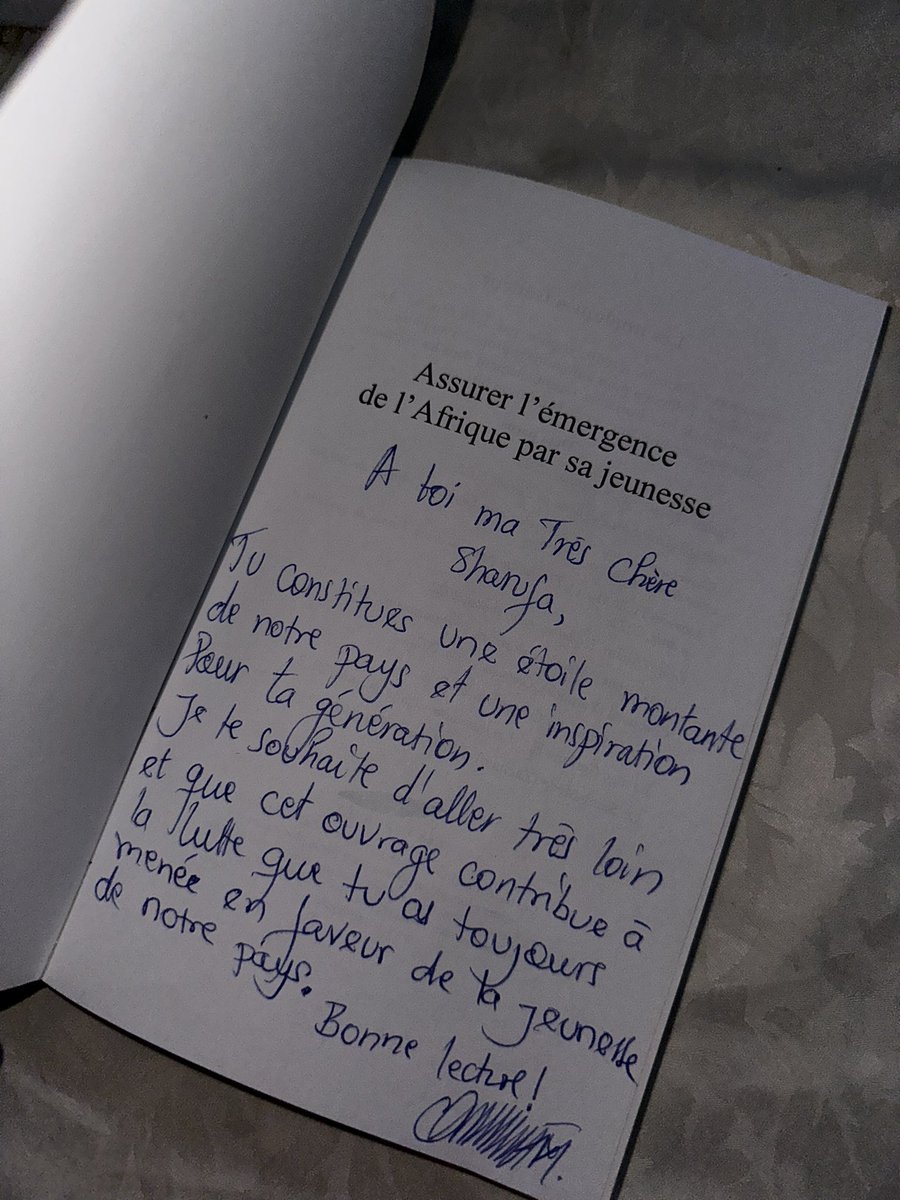 Assurer l'émergence
de l'Afrique par sa jeunesse
A toi ma Très Chère
Sharifa,
Tu constitues une étoile montante
de notre pays et une inspiration
Pour ta génération.
Je te souhaite d'aller très loin
et que cet ouvrage contribue à
la lutte que tu as toujours
menée en faveur de la jeunesse
de notre
pays.
Bonne lecture!